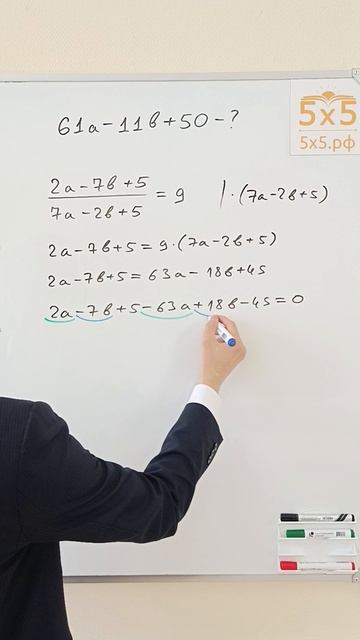 5х5
5х5.рф
61a-11в+50-?
(2a-7в+5)/(7a-2в+5) = 9 |·(7a-2в+5)
2a-7в+5=9·(7a-2в+5)
2a-7в+5=63a-18в+45
2a-7в+5-63a+18в-45=0